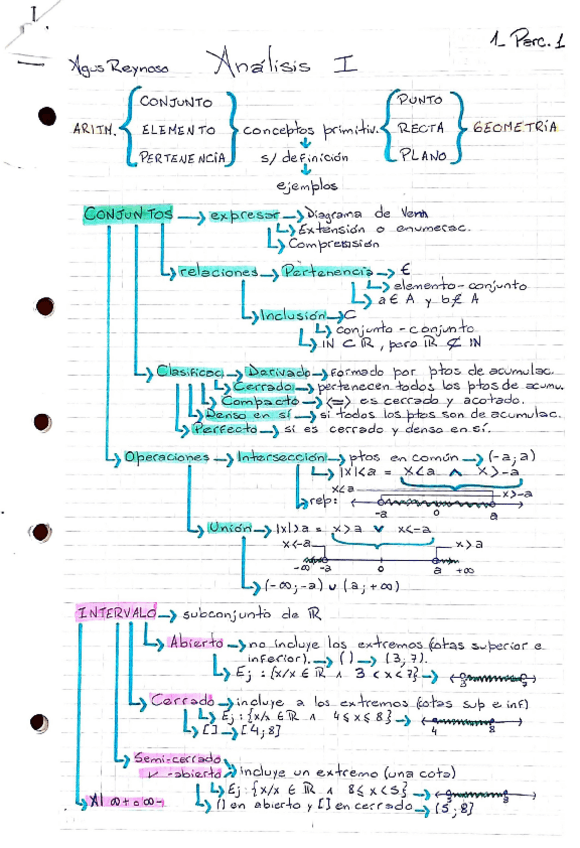 I.
1_ Parc. 1
Agus Reynoso Análisis I
ARITM. { CONJUNTO ELEMENTO PERTENENCIA } conceptos primitiv. { PUNTO RECTA PLANO } GEOMETRÍA
s/ definición
ejemplos
CONJUNTOS → expresar → Diagrama de Venn
Extensión o enumerac.
Comprensión
relaciones → Pertenencia → ∈
elemento-conjunto
a ∈ A y b ∉ A
Inclusión → ⊂
conjunto - conjunto
IN ⊂ IR, pero IR ⊄ IN
Clasificac → Derivado → formado por ptos de acumulac.
Cerrado → pertenecen todos los ptos de acumu.
Compacto → <=> es cerrado y acotado.
Denso en sí → si todos los ptos son de acumulac.
Perfecto → si es cerrado y denso en sí.
Operaciones → Intersección → ptos en común → (-a; a)
|x|<a = x<a ∧ x>-a
x<a
rep: x>-a
-a 0 a
Unión → |x|>a = x>a ∨ x<-a
x<-a x>a
-∞ -a 0 a +∞
(-∞; -a) ∪ (a; +∞)
INTERVALO → subconjunto de IR
Abierto → no incluye los extremos (cotas superior e
inferior). → ( ) → (3, 7).
Ej: {x/x ∈ IR ∧ 3 < x < 7} → 3 7
Cerrado → incluye a los extremos (cotas sup e inf)
Ej: {x/x ∈ IR ∧ 4 ≤ x ≤ 8} →
[ ] → [4; 8] 4 8
Semi-cerrado
-abierto → incluye un extremo (una cota)
Ej: {x/x ∈ IR ∧ 8 ≤ x < 5} →
( ) en abierto y [ ] en cerrado → (5; 8]